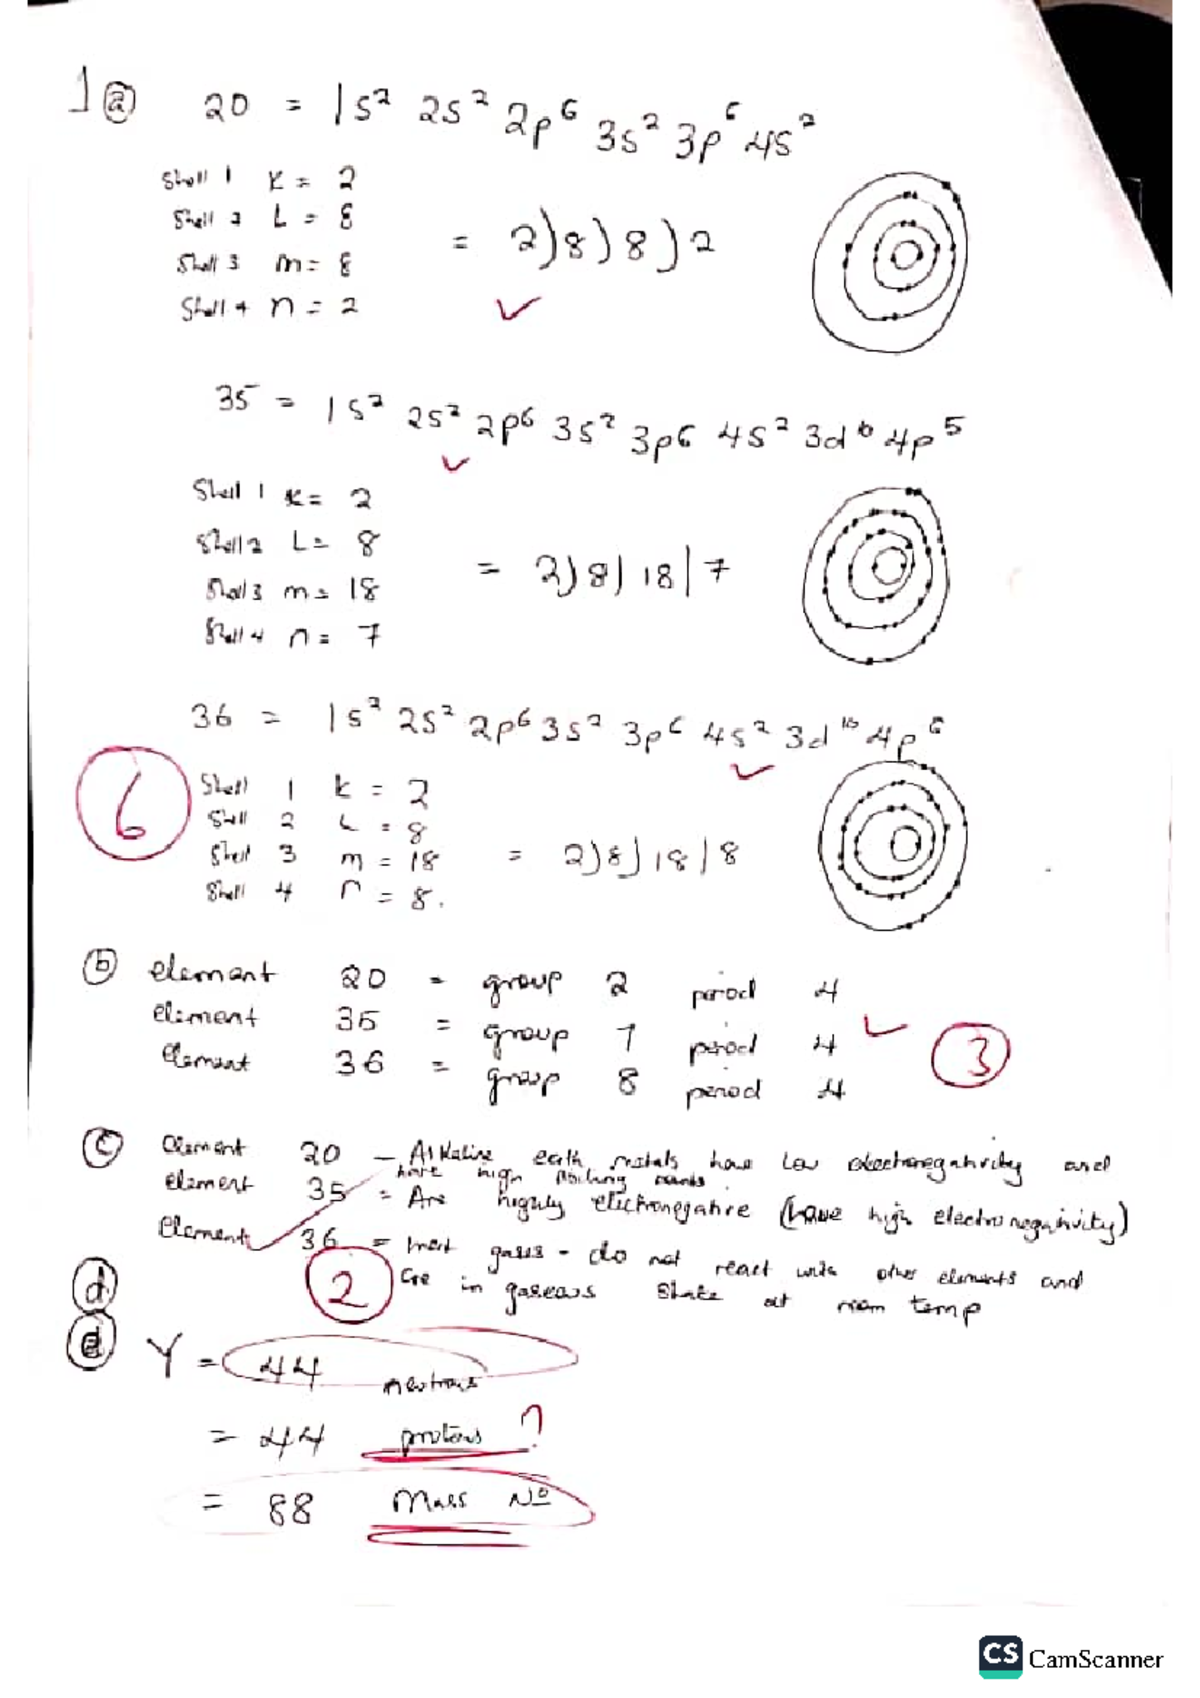 1 (a) 20 = 1s² 2s² 2p⁶ 3s² 3p⁶ 4s²
Shell 1 K = 2
Shell 2 L = 8
Shell 3 m = 8
Shell 4 n = 2
= 2)8)8)2
35 = 1s² 2s² 2p⁶ 3s² 3p⁶ 4s² 3d¹⁰ 4p⁵
Shell 1 K = 2
Shell 2 L = 8
Shell 3 m = 18
Shell 4 n = 7
= 2)8)18)7
36 = 1s² 2s² 2p⁶ 3s² 3p⁶ 4s² 3d¹⁰ 4p⁶
6
Shell 1 K = 2
Shell 2 L = 8
Shell 3 m = 18
Shell 4 n = 8.
= 2)8)18)8
(b) element 20 = group 2 period 4
element 35 = group 7 period 4
Element 36 = group 8 period 4
3
(c) Element 20 – Alkaline earth metals have low electronegativity and
have high boiling
element 35 = Are highly electronegative (have high electronegativity)
Element 36 = Inert gases – do not react with other elements and
are in gaseous state at room temp
2
(d)
(e) Y = 44 neutrons
= 44 protons ?
= 88 Mass Nº
CS CamScanner